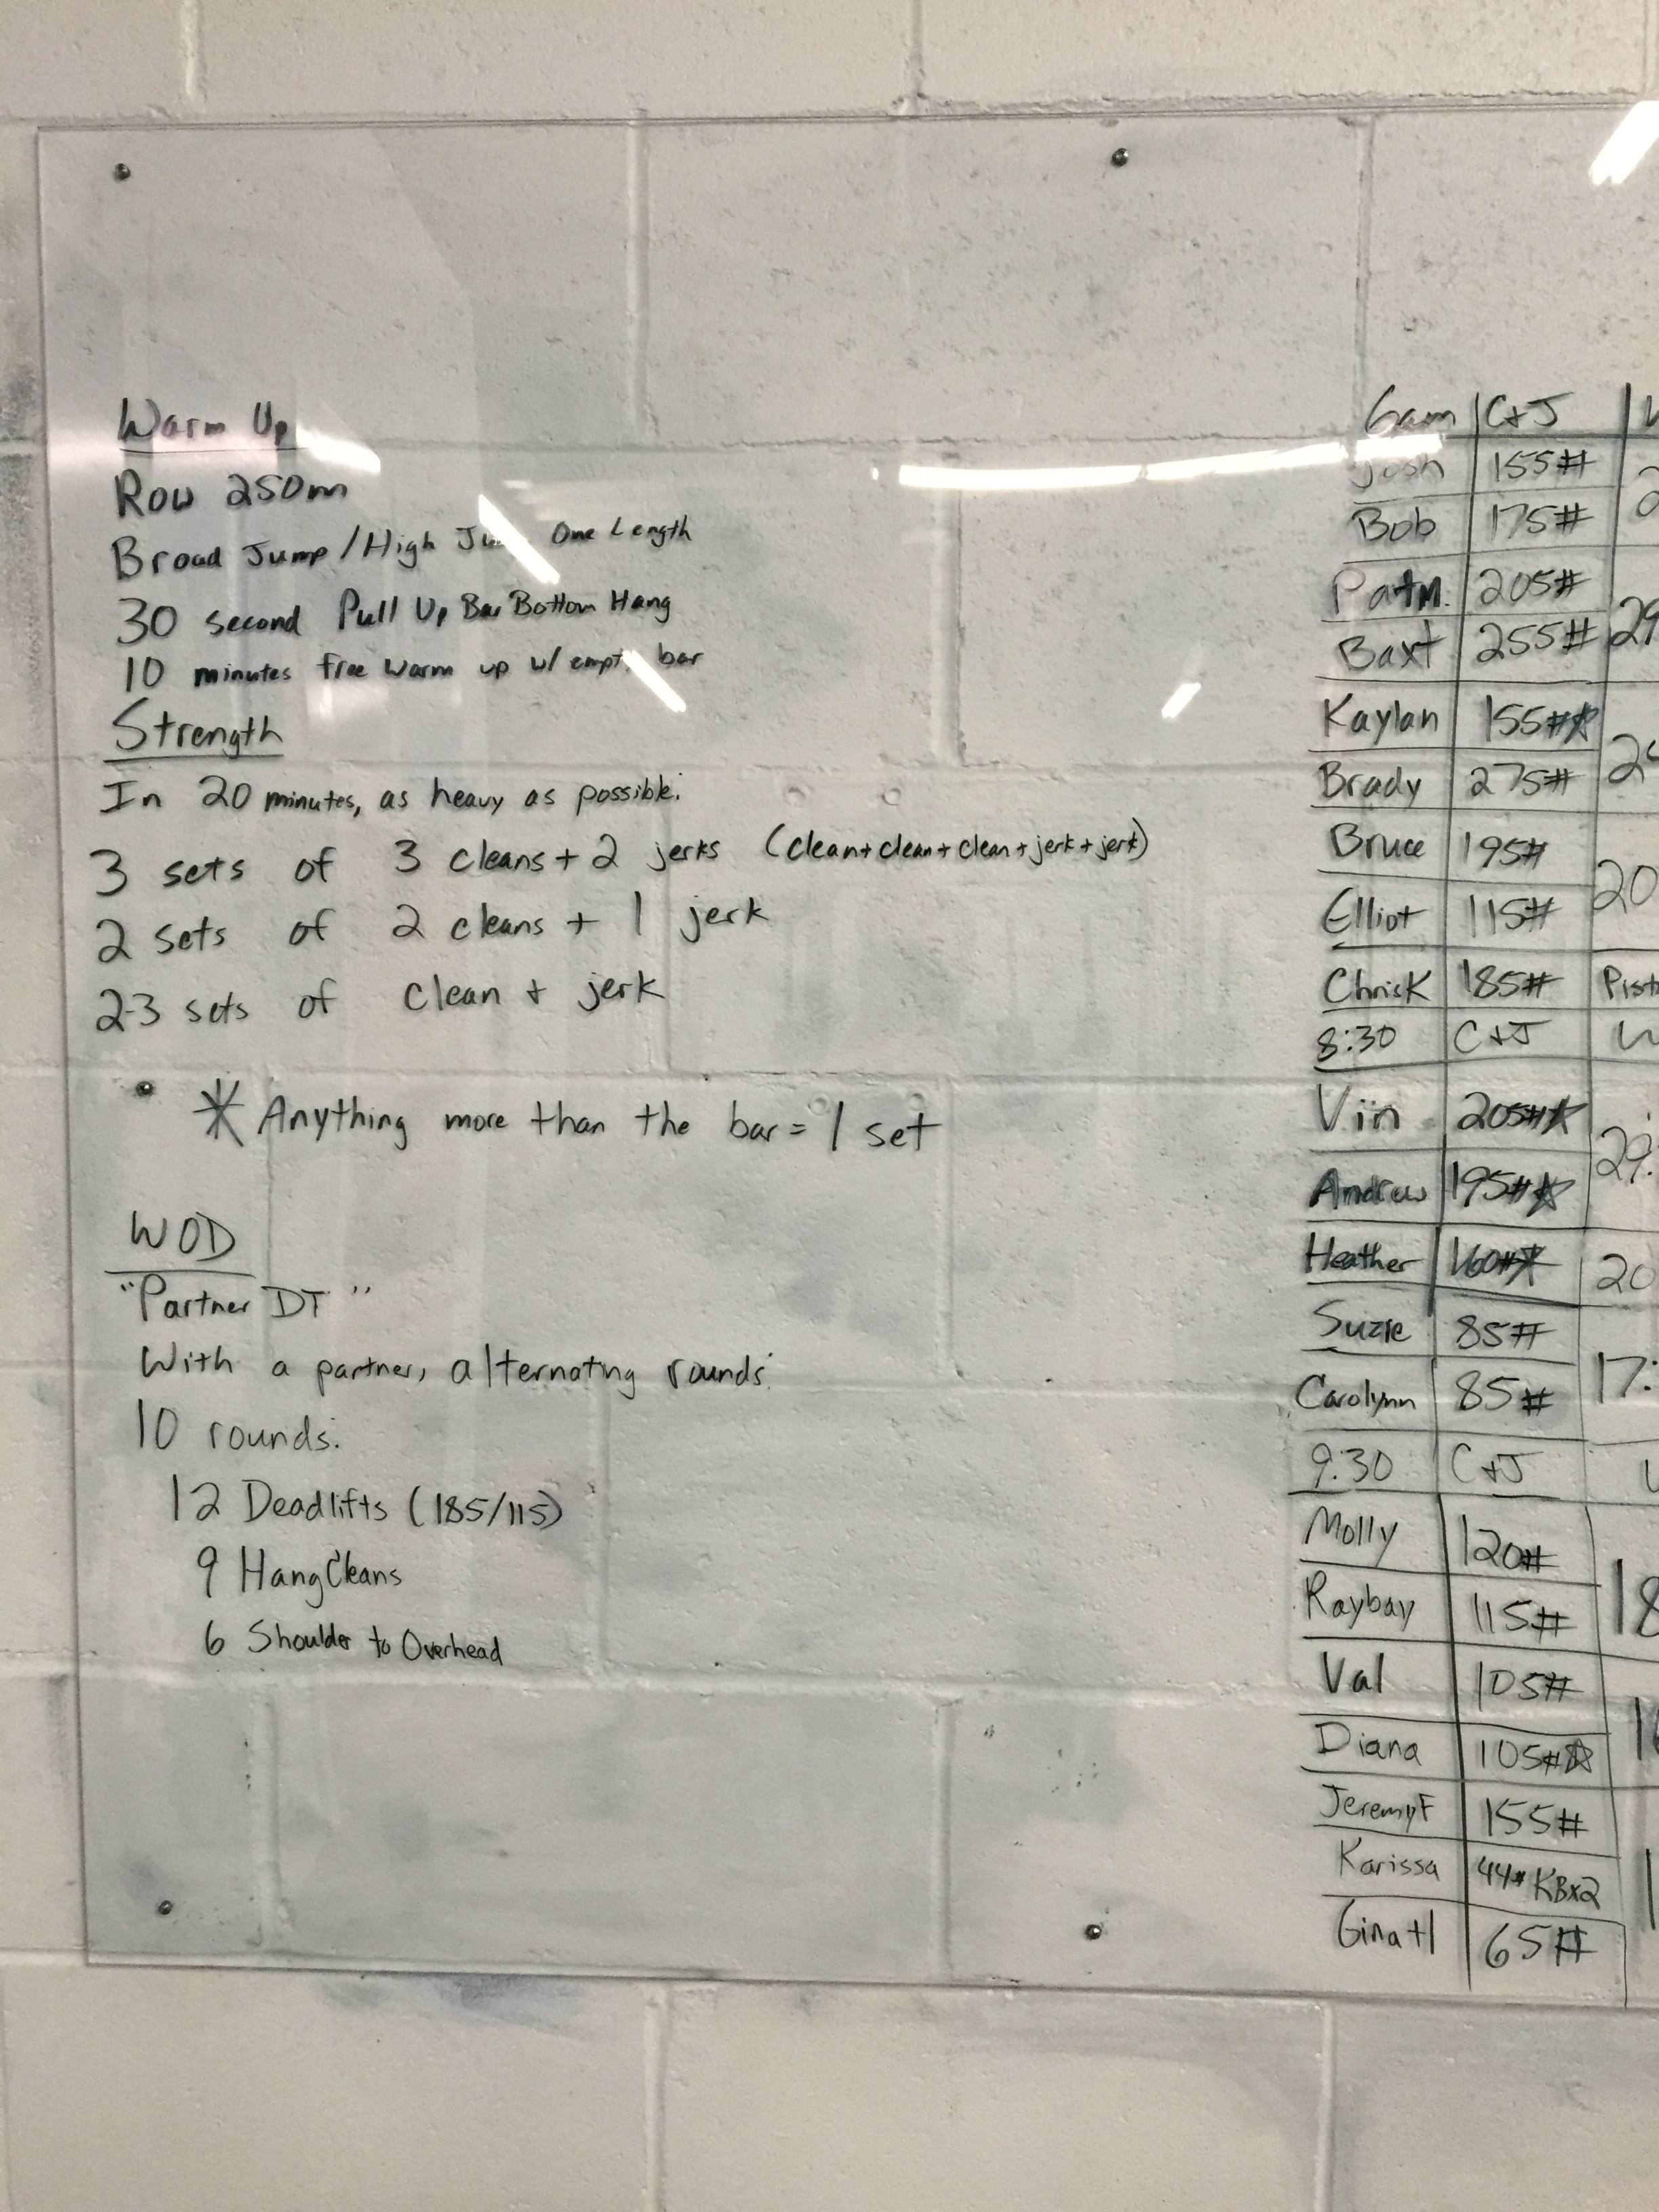 Warm Up
Row 250m
Broad Jump/High One Length
30 second Pull Up Bar Bottom Hang
10 minutes free warm up w/ bar
Strength
In 20 minutes, as heavy as possible:
3 sets of 3 cleans + 2 jerks (clean+clean+clean+jerk+jerk)
2 sets of 2 cleans + 1 jerk
2-3 sets of clean + jerk
* Anything more than the bar = 1 set
WOD
"Partner DT"
With a partner, alternating rounds:
10 rounds:
12 Deadlifts (185/115)
9 Hang Cleans
6 Shoulder to Overhead
6am C+J
Josh 155#
Bob 175#
Pat M. 205#
Baxt 255# 29
Kaylan 155#☆
Brady 275#
Bruce 195#
Elliot 115# 20
ChrisK 185#
8:30 C+J
Vin 205#☆
Andrew 195#☆ 29:
Heather 160#☆ 20
Suzie 85#
Carolynn 85# 17:
9:30 C+J
Molly 120#
Raybay 115# 18
Val 105#
Diana 105#☆
JeremyF 155#
Karissa 44# KBx2
Gina H 65#